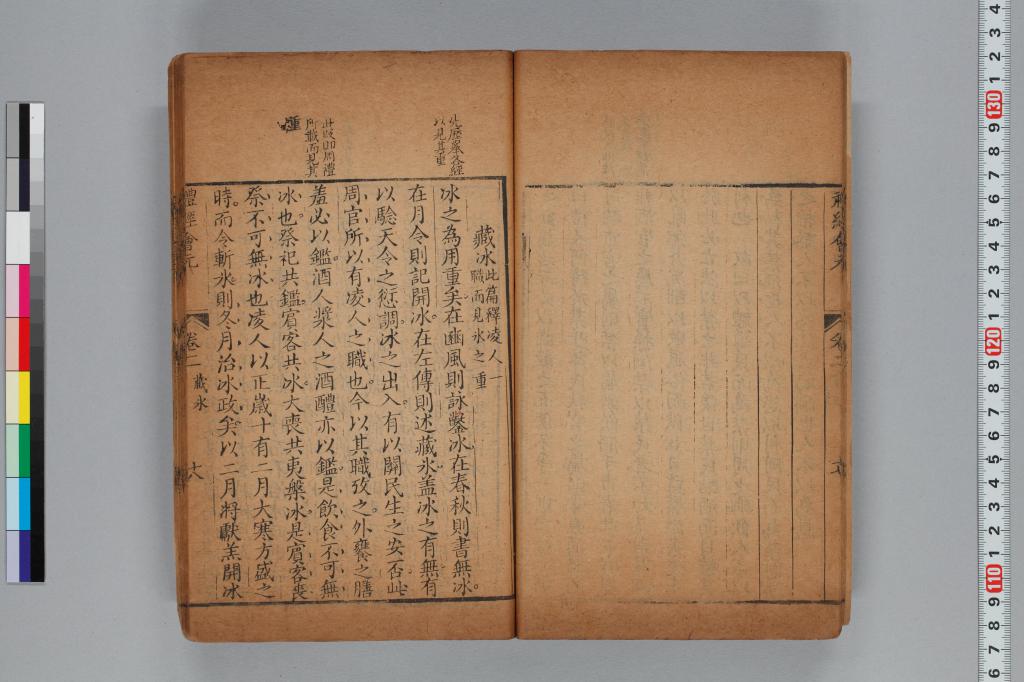 禮經會元
卷二
藏冰此篇釋凌人一
職而見冰之重
此歷舉各經
以見其重
冰之為用重矣在豳風則詠鑿冰在春秋則書無冰
在月令則記開冰在左傳則述藏冰蓋冰之有無有
以驗天令之愆調冰之出入有以關民生之安否此
周官所以有凌人之職也今以其職攷之外饔之膳
此段即周禮
所職而見其
重
羞必以鑑酒人漿人之酒醴亦以鑑是飲食不可無
冰也祭祀共鑑賓客共冰大喪共夷槃冰是賓客喪
祭不可無冰也凌人以正歲十有二月大寒方盛之
時而令斬冰則冬月治冰政矣以二月將獻羔開冰
禮經會元
卷二 藏冰